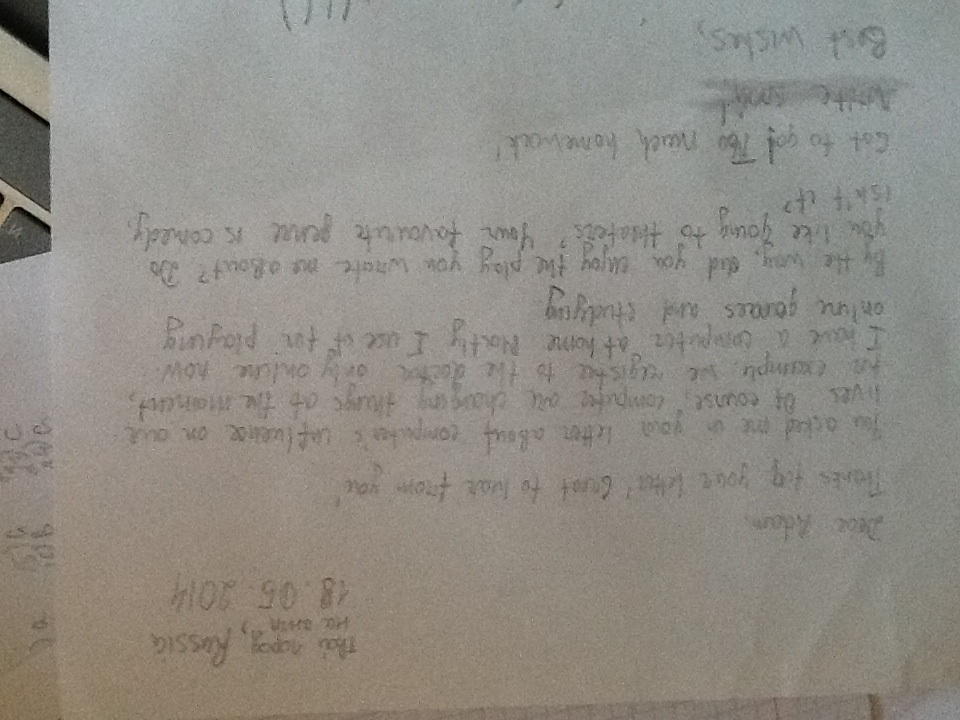 Твой город,
на англ
Russia
18.05.2014
Dear Adam,
Thanks for your letter! Great to hear from you!
You asked me in your letter about computer's influence on our
lives. Of course, computer are changing things at the moment,
for example, we register to the doctor only online now.
I have a computer at home. Mostly I use it for playing
online games and studying
By the way, did you enjoy the play you wrote me about? Do
you like going to theaters? Your favourite genre is comedy,
isn't it?
Got to go! Too much homework!
Write soon!
Best wishes,